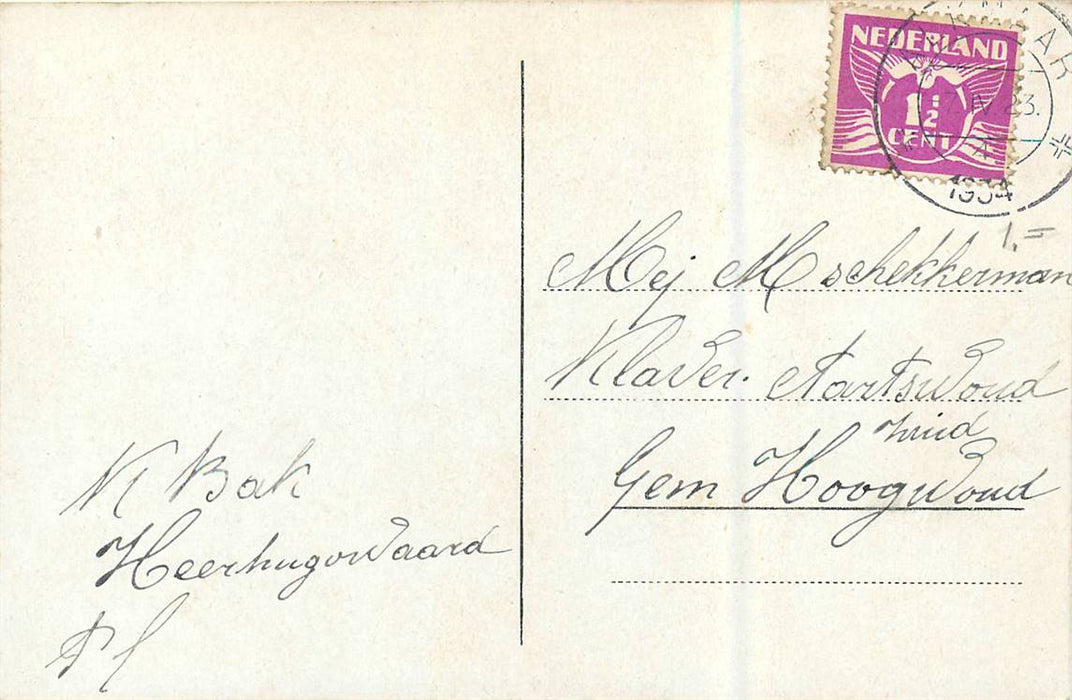 NEDERLAND
1½
CENT
IV 23.
1934
1.=
Mej M schekkerman
Klaver. Aartswoud
Zuid
Gem Hoogwoud
K Bak
Heerhugowaard